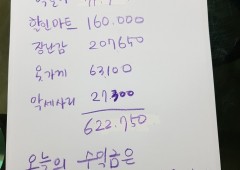 한한마트 160.000
장난감 207650
옷가게 63100
악세사리 27300
622.750
오늘의 수익금은